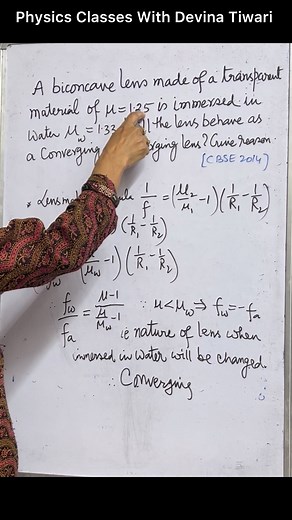 Physics Classes With Devina Tiwari
A biconcave lens made of a transparent
material of μ = 1.25 is immersed in
Water μw = 1.33 ll the lens behave as
a Converging rging lens? Give reason
[CBSE 2014]
* Lens ma la 1/f = (μ2/μ1 - 1)(1/R1 - 1/R2)
(1/R1 - 1/R2)
/μw - 1)(1/R1 - 1/R2)
fw/fa = μ-1/μ/μw - 1 ∵ μ<μw ⇒ fw = -fa
ie nature of lens when
immersed in water will be changed.
∴ Converging